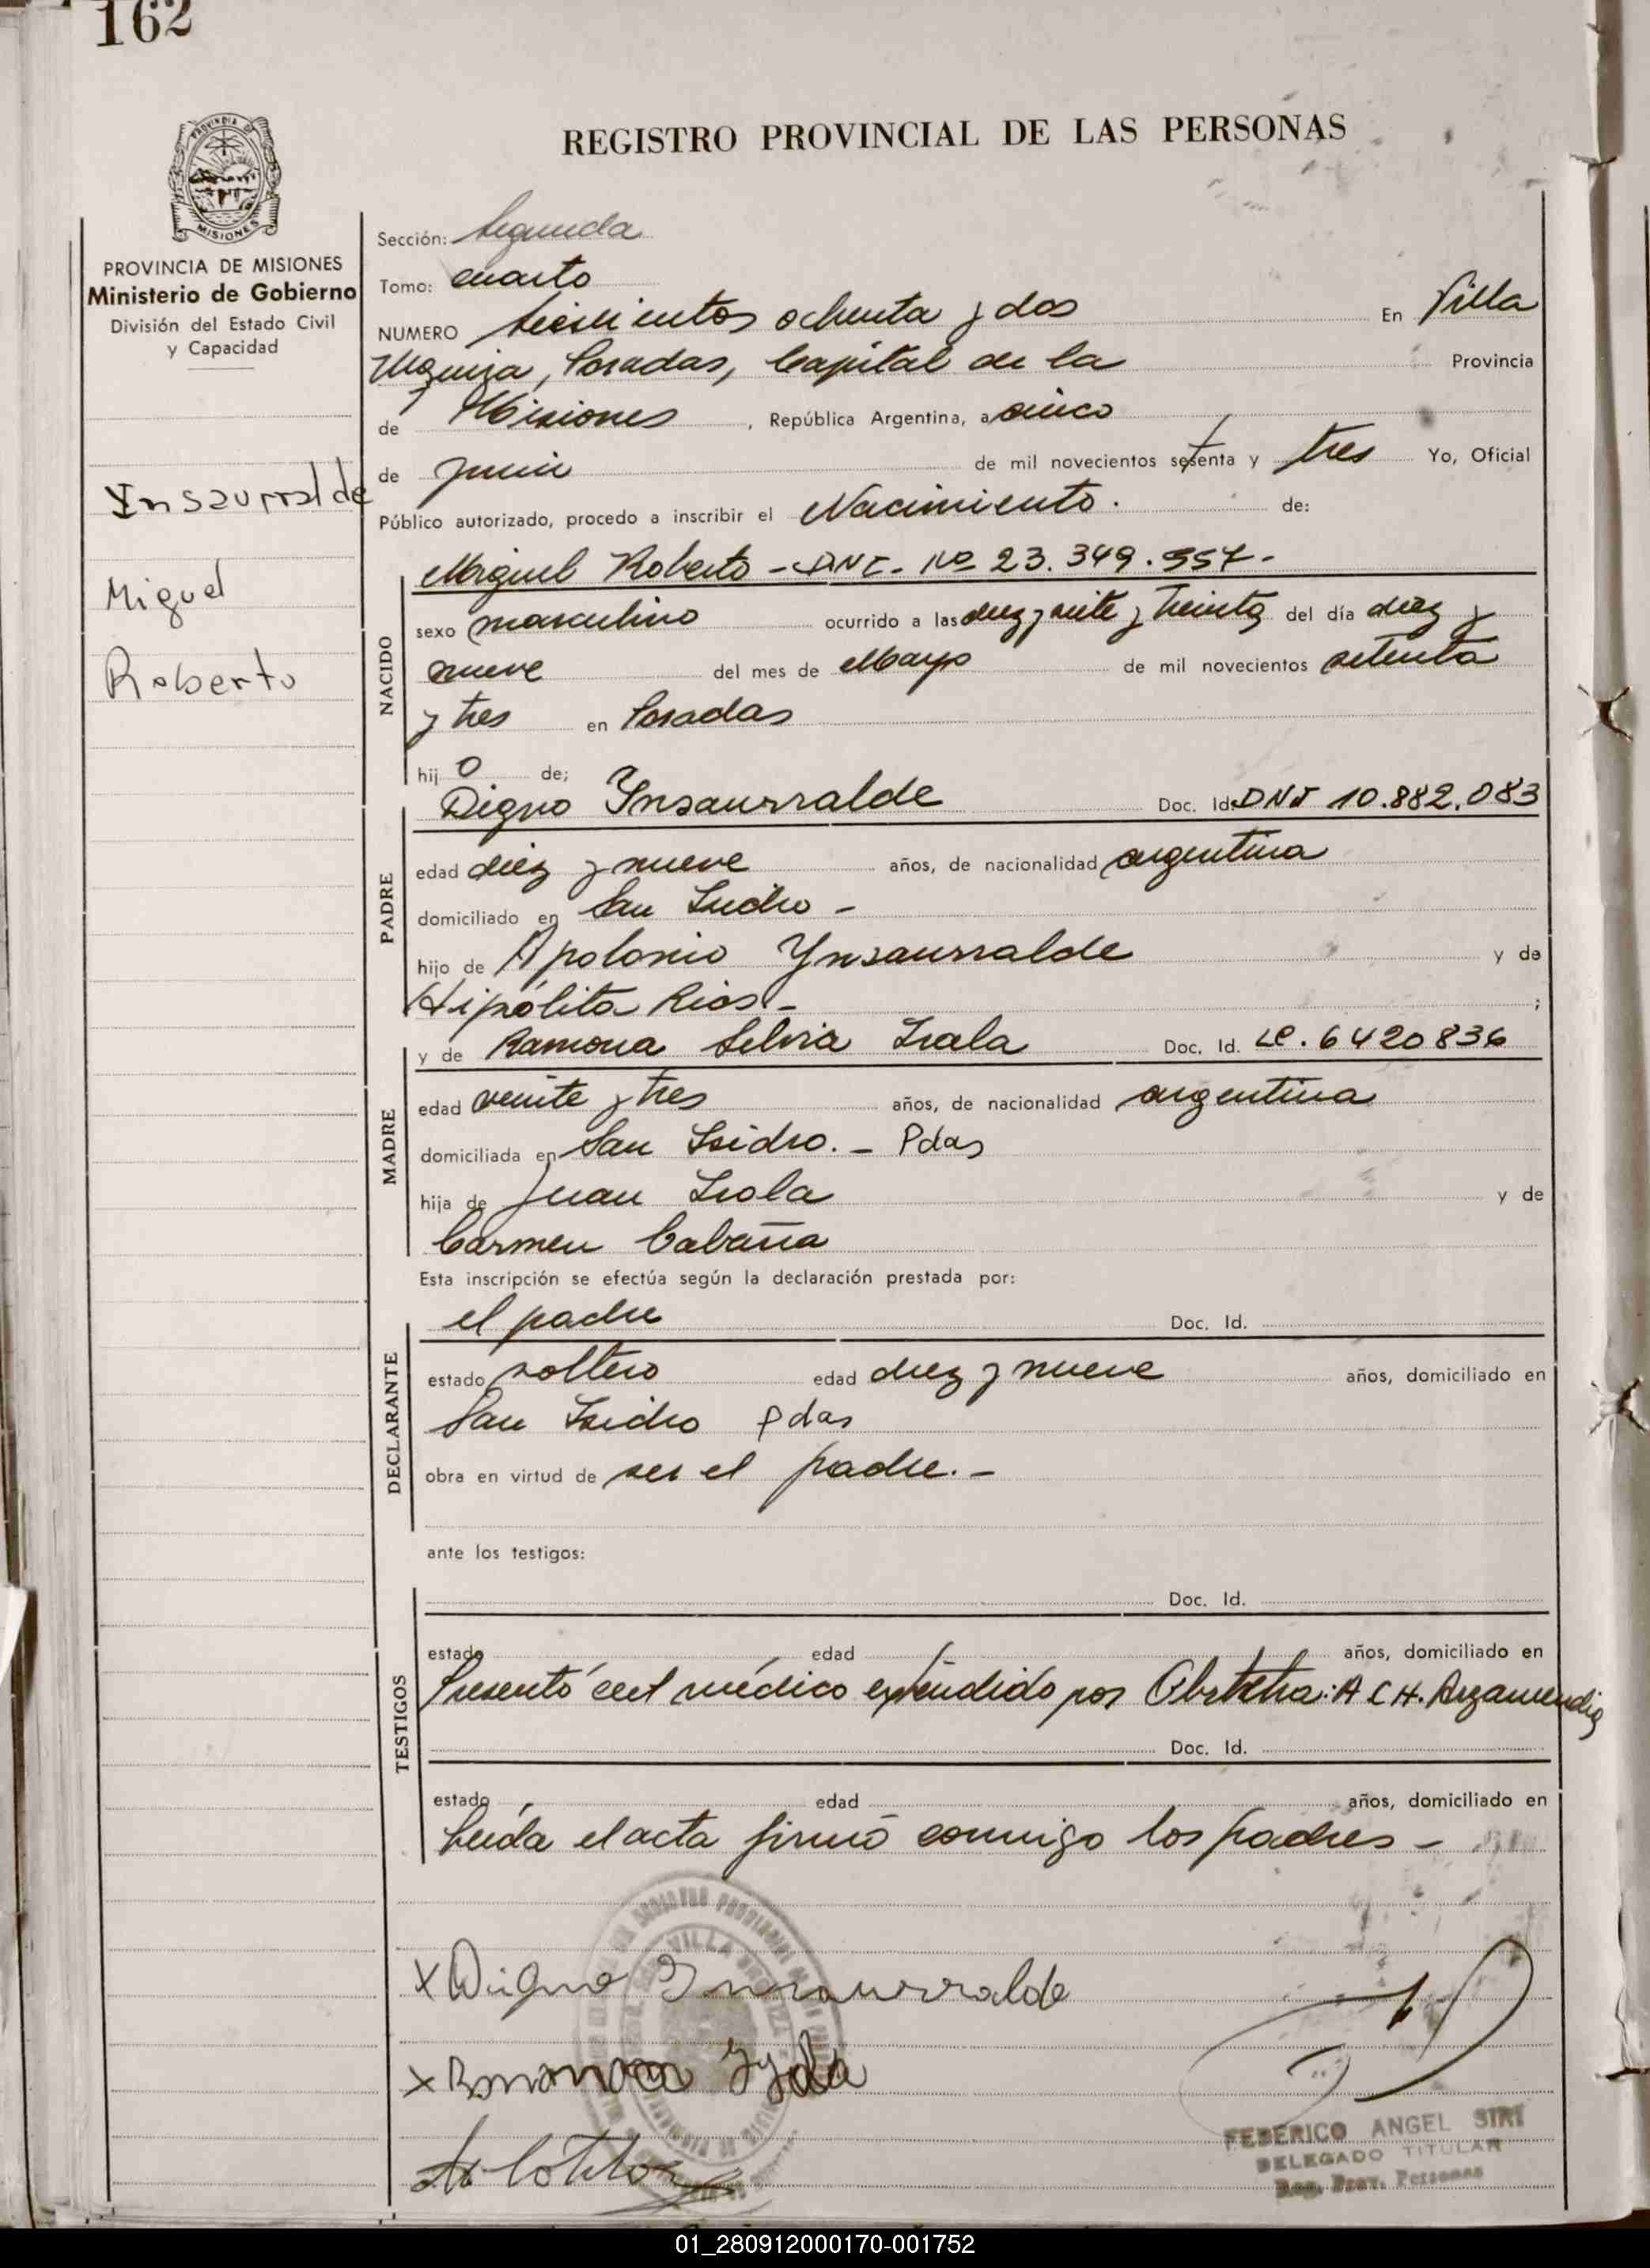 162
REGISTRO PROVINCIAL DE LAS PERSONAS
PROVINCIA DE
MISIONES
PROVINCIA DE MISIONES
Ministerio de Gobierno
División del Estado Civil
y Capacidad
Ynsaurralde
Miguel
Roberto
Sección: Segunda
Tomo: cuarto
NUMERO trescientos ochenta y dos En Villa
Urquiza, Posadas, Capital de la Provincia
de Misiones, República Argentina, a cinco
de junio de mil novecientos setenta y tres Yo, Oficial
Público autorizado, procedo a inscribir el Nacimiento. de:
NACIDO
Miguel Roberto - DNI - Nº 23.349.557-
sexo masculino ocurrido a las diez y siete y treinta del día diez y
nueve del mes de Mayo de mil novecientos setenta
y tres en Posadas
hijo de;
PADRE
Digno Ynsaurralde Doc. Id. DNI 10.882.083
edad diez y nueve años, de nacionalidad argentina
domiciliado en San Isidro -
hijo de Apolonio Ynsaurralde y de
Hipólita Rios - ;
MADRE
y de Ramona Selvia Irala Doc. Id. LC. 6420836
edad veinte y tres años, de nacionalidad argentina
domiciliada en San Isidro. - Pdas
hija de Juan Irala y de
Carmen Cabaña
Esta inscripción se efectúa según la declaración prestada por:
DECLARANTE
el padre Doc. Id.
estado soltero edad diez y nueve años, domiciliado en
San Isidro Pdas
obra en virtud de ser el padre. -
ante los testigos:
TESTIGOS
Doc. Id.
estado edad años, domiciliado en
Presentó cert médico expendido por Obstetra: A C H. Arzamendia
Doc. Id.
estado edad años, domiciliado en
Leída el acta firmó conmigo los padres -
x Digno Ynsaurralde
x Ramona
VILLA URQUIZA
FEDERICO ANGEL SIRI
DELEGADO TITULAR
Reg. Prov. Personas
01_280912000170-001752